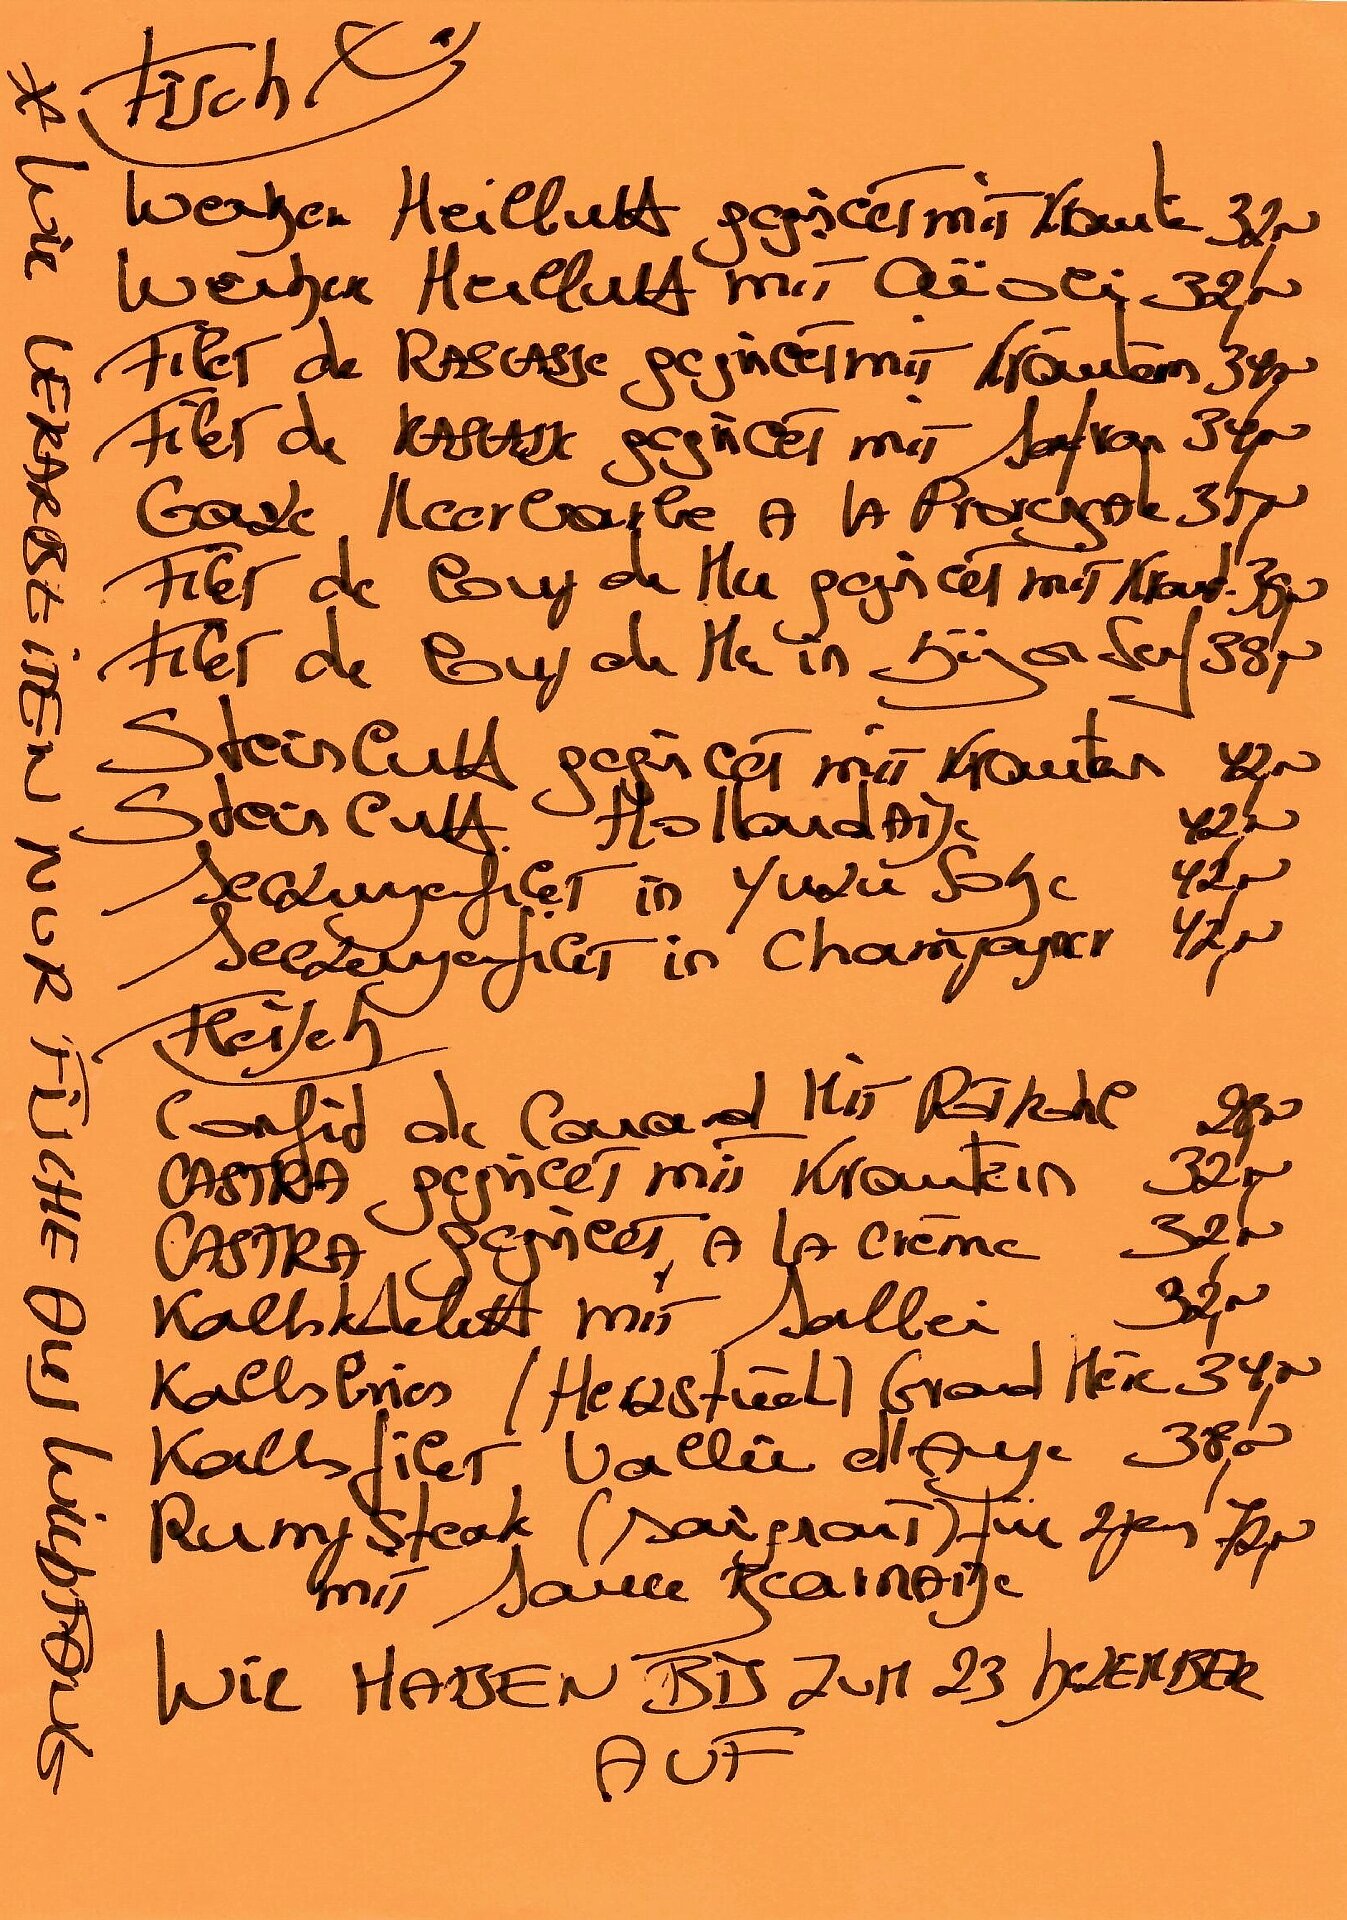 Fisch
Weißen Heilbutt gegrillt mit Kräute 32,-
Weißen Heilbutt mit Aïoli 32,-
Filet de RASCASSE gegrillt mit Kräutern 34,-
Filet de RASCASSE gegrillt mit Safran 34,-
Ganze Meerbarbe A LA Provençale 35,-
Filet de Loup de Mer gegrillt mit Kräut. 38,-
Filet de Loup de Mer in Dijon Senf 38,-
Steinbutt gegrillt mit Kräutern 42,-
Steinbutt HollandAise 42,-
Seezungenfilet in Yuzu Soße 42,-
Seezungenfilet in Champagner 42,-
Fleisch
Confid de Canard Mit Rotkohl
CASTRA gegrillt mit Kräutern 32,-
CASTRA gegrillt A LA Crème 32,-
Kalbskotelett mit Salbei 32,-
Kalbsbries (Herzstück) Grand Mère 34,-
Kalbsfilet Vallée d'Auge 38,-
RumpSteak (saignant) für 2 pers 72,-
mit Sauce BearnAise
Wir HABEN BIS ZUM 23 DEZEMBER
AUF
* Wir VERARBEITEN NUR FISCHE AUS Wildfang